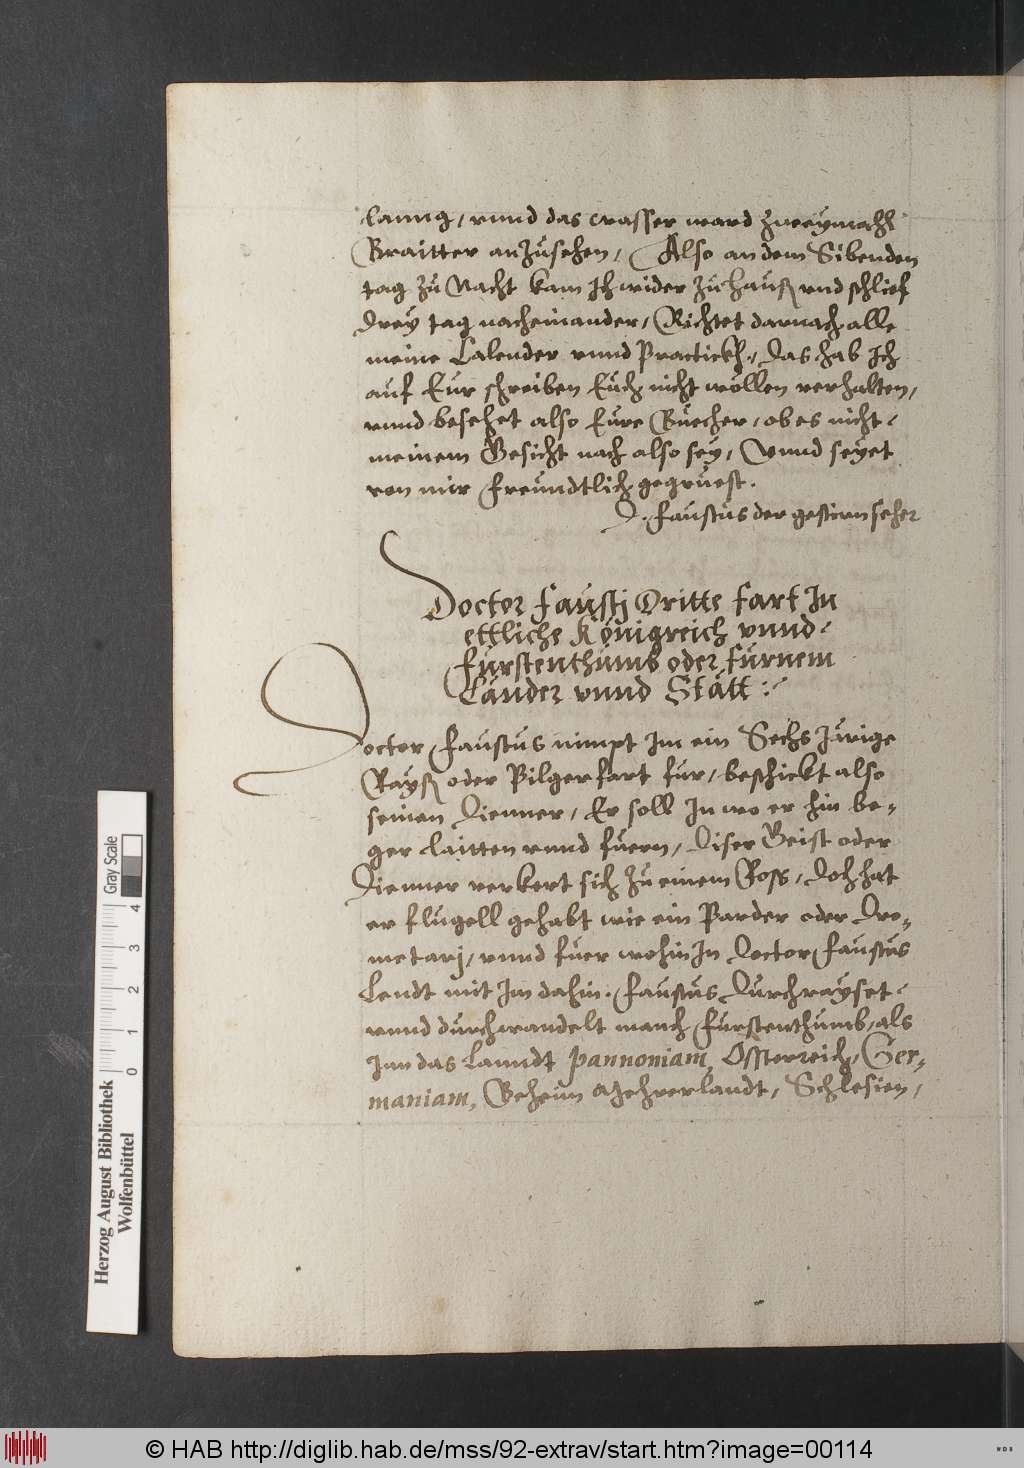 lanng, vnnd das wasser ward zweymahl
Braitter anzusehen, Also an dem Sibenden
tag zu Nacht kam Ich wider zu hauß vnd schlief
drey tag nacheinander, Richtet darnach alle
meine Calender vnnd Practickh, das hab Ich
auf Eur schreiben Euch nicht wöllen verhalten,
vnnd besehet also Eure Büecher, ob es nicht
meinem Gesicht nach also sey, Vnnd seyet
von mir freundtlich gegrüest.
D. Faustus der gestirn seher
Doctor Faustj Dritte Fart In
ettliche Königreich vnnd
Fürstenthumb oder fürnem
Länder vnnd Stätt :
Doctor Faustus nimpt Im ein Sechs Järige
Rayß oder Pilgerfart fur, beschickt also
seinen Dienner, Er soll In wo er hin be-
ger laitten vnnd füern, Diser Geist oder
Dienner verkert sich zu einem Ross, doch hat
er flugell gehabt wie ein Parder oder Dro-
metarj, vnnd fuer wohin In Doctor Faustus
Lendt mit Im dahin. Faustus durchrayset
vnnd durchwandelt manch Furstenthumb, als
Inn das Lanndt Pannoniam, Ossterreich, Ger-
maniam, Beheim Mehrerlandt, Schlesien,
Gray Scale
0 1 2 3 4
Herzog August Bibliothek
Wolfenbüttel
© HAB http://diglib.hab.de/mss/92-extrav/start.htm?image=00114